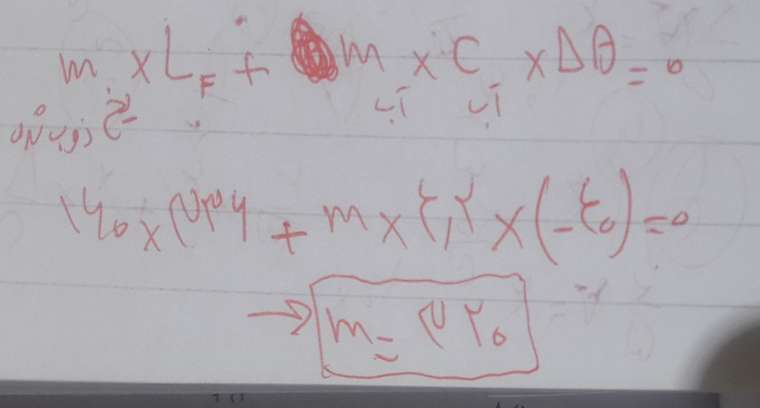 m یخ ذوب شده × L_F + m آب × C آب × Δθ = ۰
۱۶۰ × ۳۳۶ + m × ۴٫۲ × (-۴۰) = ۰
→ m = ۳۲۰